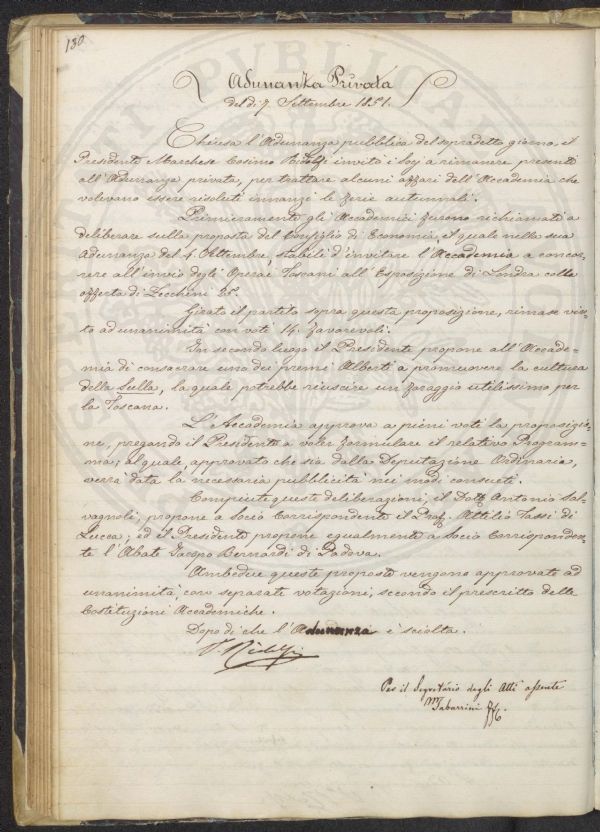 180
Adunanza Privata
del dì 7 Settembre 1851.
Chiusa l'Adunanza pubblica del sopradetto giorno, il
Presidente Marchese Cosimo Ridolfi invitò i Socj a rimanere presenti
all'Adunanza privata, per trattare alcuni affari dell'Accademia che
volevano essere risoluti innanzi le ferie autunnali.
Primieramente gli Accademici furono richiamati a
deliberare sulla proposta del Consiglio di Economia, il quale nella sua
Adunanza del 4 Settembre, stabilì d'invitare l'Accademia a concor-
rere all'invio degli Operai Toscani all'Esposizione di Londra colla
offerta di Zecchini 25.
Girato il partito sopra questa proposizione, rimase vin-
to ad unanimità con voti 14 favorevoli.
In secondo luogo il Presidente propone all'Accade-
mia di consacrare uno dei premi Alberti a promuovere la cultura
della Sulla, la quale potrebbe riuscire un foraggio utilissimo per
la Toscana.
L'Accademia approva a pieni voti la proposizio-
ne, pregando il Presidente a voler formulare il relativo Program-
ma; al quale, approvato che sia dalla Deputazione Ordinaria,
verrà data la necessaria pubblicità nei modi consueti.
Compiute queste deliberazioni, il Dott. Antonio Sal-
vagnoli, propone a Socio Corrispondente il Prof. Attilio Tassi di
Lucca; ed il Presidente propone egualmente a Socio Corrisponden-
te l'Abate Jacopo Bernardi di Padova.
Ambedue queste proposte vengono approvate ad
unanimità, con separate votazioni, secondo il prescritto delle
Costituzioni Accademiche.
Dopo di che l'Adunanza è sciolta.
C. Ridolfi
Per il Segretario degli Atti assente
M Tabarrini